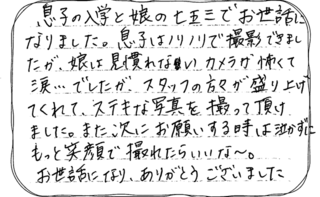 息子の入学と娘の七五三でお世話に
なりました。息子はノリノリで撮影できまし
たが、娘は見慣れないカメラが怖くて
涙…でしたが、スタッフの方々が盛り上げ
てくれて、ステキな写真を撮って頂け
ました。また次にお願いする時は泣かずに
もっと笑顔で撮れたらいいな〜。
お世話になり、ありがとうございました